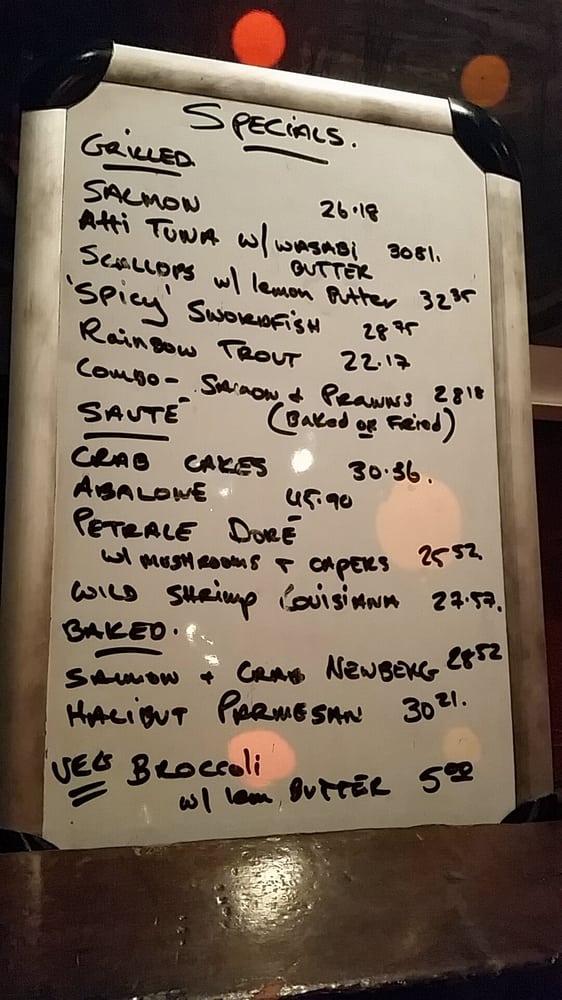 SPECIALS.
GRILLED
SALMON 26.18
AHI TUNA w/ WASABI 3081.
BUTTER
SCALLOPS w/ lemon Butter 32 35
'SPICY' SWORDFISH 28 75
RAINBOW TROUT 22.17
COMBO- SALMON & PRAWNS 28 18
(BAKED OR FRIED)
SAUTE
CRAB CAKES 30.36.
ABALONE 45.90
PETRALE DORÉ
W/ MUSHROOMS + CAPERS 25 52
WILD SHRIMP LOUISIANA 27.57.
BAKED.
SALMON + CRAB NEWBERG 28 52
HALIBUT PARMESAN 30 21.
VEG BROCCOLI
w/ lem BUTTER 5 00